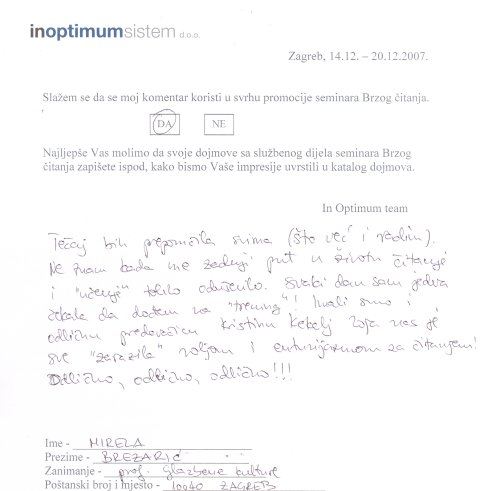 inoptimumsistem d.o.o.
Zagreb, 14.12. – 20.12.2007.
Slažem se da se moj komentar koristi u svrhu promocije seminara Brzog čitanja.
DA NE
Najljepše Vas molimo da svoje dojmove sa službenog dijela seminara Brzog
čitanja zapišete ispod, kako bismo Vaše impresije uvrstili u katalog dojmova.
In Optimum team
Tečaj bih preporučila svima (što već i radim).
Ne znam kada me zadnji put u životu čitanje
i "učenje" toliko oduševilo. Svaki dan sam jedva
čekala da dođem na "trening"! Imali smo i
odličnu predavačicu Kristinu koja nas je
sve "zarazila" voljom i entuzijazmom za čitanjem!
Odlično, odlično, odlično!!!
Ime - MIRELA
Prezime - BREZARIĆ
Zanimanje - prof. glazbene kulture
Poštanski broj i mjesto - 10040 ZAGREB